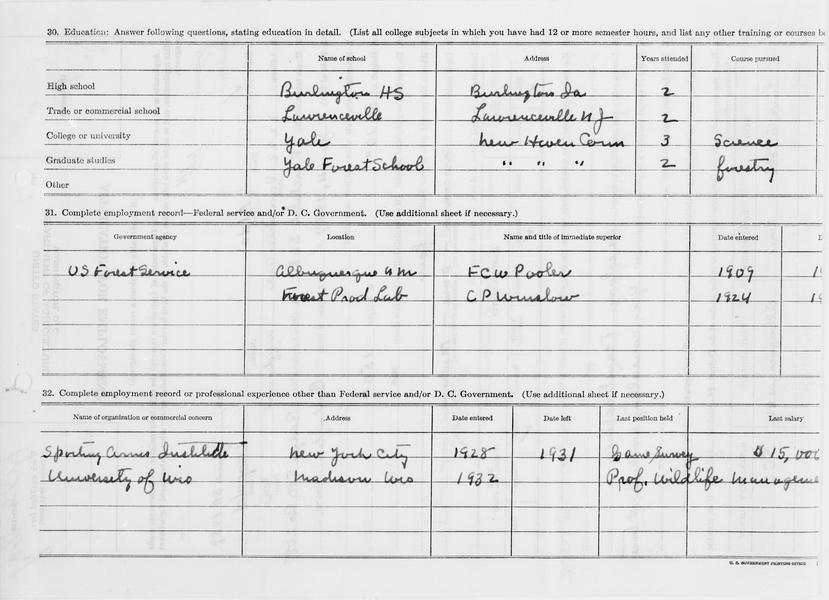 30. Education: Answer following questions, stating education in detail. (List all college subjects in which you have had 12 or more semester hours, and list any other training or courses
Name of school Address Years attended Course pursued
High school Burlington HS Burlington Ia 2
Trade or commercial school Lawrenceville Lawrenceville N J 2
College or university Yale New Haven Conn 3 Science
Graduate studies Yale Forest School " " " 2 forestry
Other
31. Complete employment record—Federal service and/or D. C. Government. (Use additional sheet if necessary.)
Government agency Location Name and title of immediate superior Date entered
US Forest Service Albuquerque N M F C W Pooler 1909
Forest Prod Lab C P Winslow 1924
32. Complete employment record or professional experience other than Federal service and/or D. C. Government. (Use additional sheet if necessary.)
Name of organization or commercial concern Address Date entered Date left Last position held Last salary
Sporting Arms Institute New York City 1928 1931 Game Survey $15,000
University of Wis Madison Wis 1932 Prof. Wildlife Manageme
U. S. GOVERNMENT PRINTING OFFICE